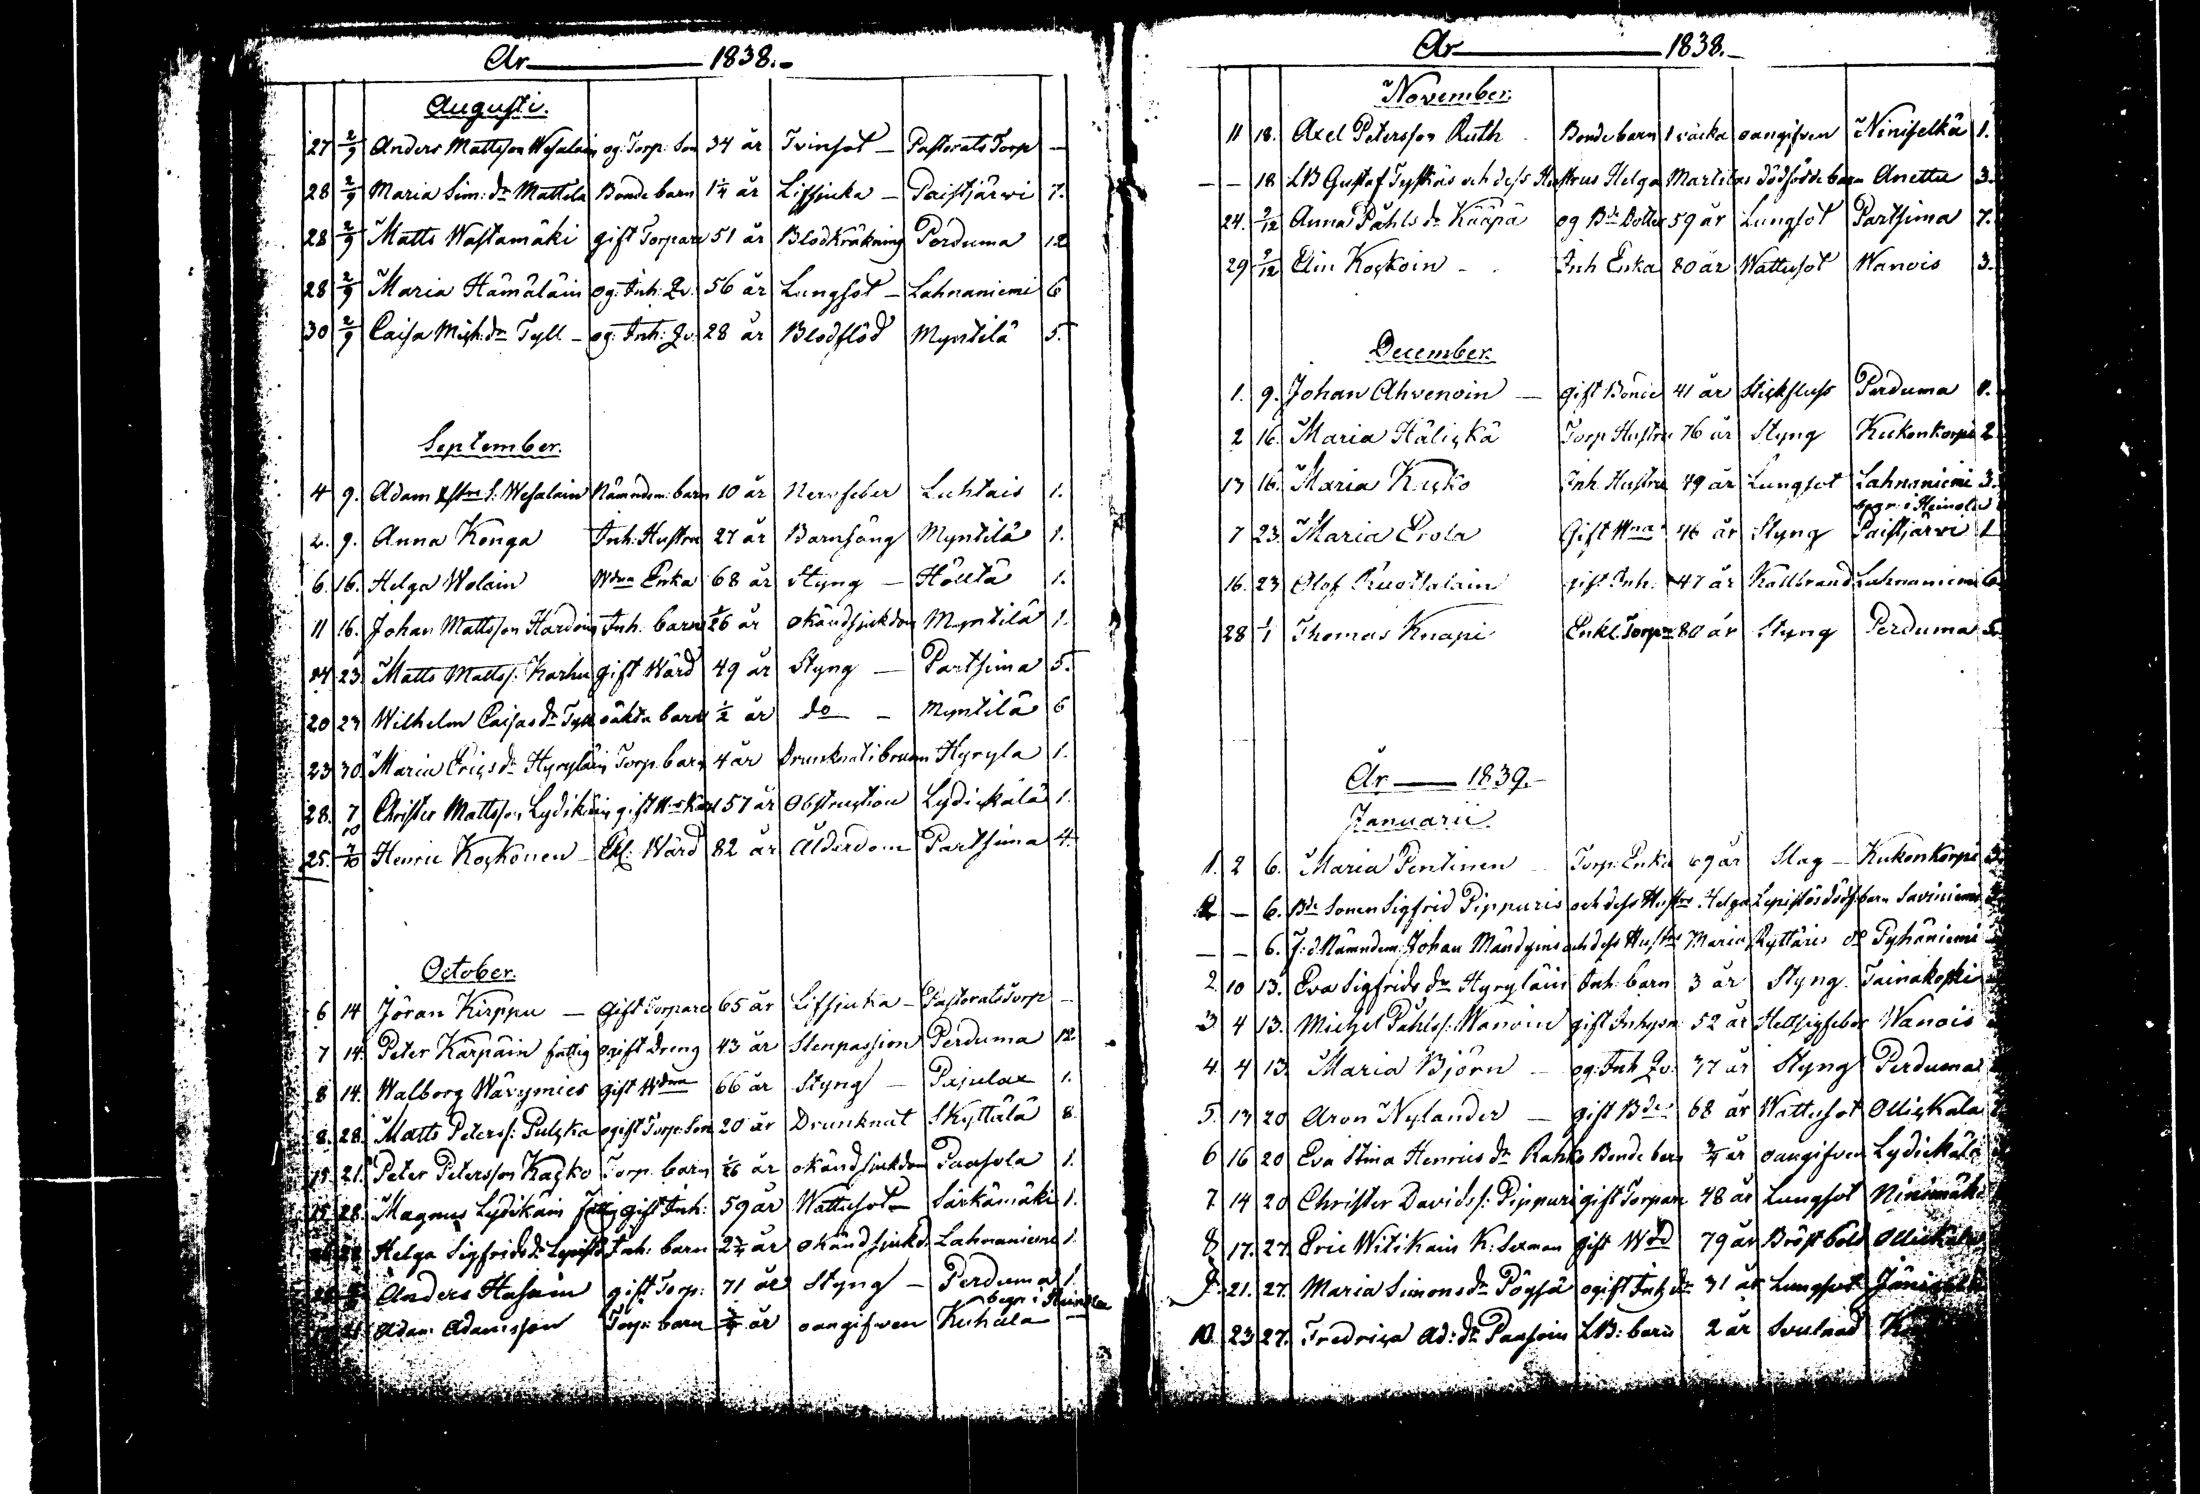 År 1838.
Augusti.
27 2/9 Anders Mattsson Wesalain og: Torp. Son 34 år Tvinsot Pastorats Torp
28 2/9 Maria Sim: dr Mattila Bonde barn 1 1/4 år Lifsjuka Paistjärwi 7.
28 2/9 Matts Wastamäki gift Torpare 51 år Blodkräkning Perduma 12
28 2/9 Maria Hämäläin og: Inh: Qv: 56 år Lungsot Lahnaniemi 6
30 2/9 Caisa Mich: dr Tyll og: Inh: Qv: 28 år Blodflöd Myntilä 5.
September.
4 9. Adam s: Wesalain Nämndem: barn 10 år Nervfeber Luhtais 1.
2. 9. Anna Konga Inh: Hustru 27 år Barnsäng Myntilä 1.
6. 16. Helga Wolain Wdna Enka 68 år Styng Hölltä 1.
11 16. Johan Mattsson Inh. barn 1/26 år okänd sjukdom Myntilä 1.
14 23. Matts Matts s: Karhu gift Wärd 49 år Styng Partsima 5.
20 23 Wilhelm Caisas dr Tyll oäkta barn 1/2 år do Myntilä 6
23 30. Maria Erics dr Hyryläin Torp. barn 4 år Drunknat i brunn Hyrylä 1.
28. 7/10 Christer Mattsson Lydikäin gift 57 år Obstruction Lydickälä 1.
25. 7/10 Henric Kockonen Ekl: Wärd 82 år Ålderdom Partsima 4.
October.
6 14 Jöran Kirppu gift Torpare 65 år Lifsjuka Pastorats Torp
7 14. Peter Kärpäin fattig ogift Dreng 43 år Stenpassion Perduma 12.
8 14. Walborg Wärymies gift Wdna 66 år Styng Pajulax 1.
8. 28. Matts Peters s: Pulcka ogift Torp: Son 20 år Drunknat Skyttälä 8.
15 21. Peter Petersson Kacko Torp. barn 1/26 år okänd sjukdom Paasola 1.
15 28. Magnus Lydikäin gift Inh: 59 år Wattusot Särkämäki 1.
28 Helga Sigfrids dr Lepistö Inh: barn 2 3/4 år okänd sjukd. Lahnaniemi 1.
Anders Hasain gift Torp: 71 år Styng Perduma 1.
begr: i Heinola
21 Adam Adamsson Torp: barn 3/4 år oangifwen Kuhala
År 1838.
November.
11 18. Axel Petersson Ruth Bonde barn 1 väcka oangifven Niniselkä 1.
18 LB Gustaf Tyskäs och dess Hustrus Helga Martilas dödfödde barn Anettu 3.
24. 2/12 Anna Påhls dr Kääpä og Bde Dotter 59 år Lungsot Partsima 7.
29 2/12 Elin Kockoin Inh Enka 80 år Wattusot Wanois 3.
December.
1. 9. Johan Ahvenoin gift Bonde 41 år Stickfluss Perduma 1.
2 16. Maria Hälickä Torp Hustru 76 år Styng Kukonkorpi 2
13 16. Maria Kucko Inh. Hustru 49 år Lungsot Lahnaniemi 3.
begr: i Heinola
7 23. Maria Erola Gift Wna 46 år Styng Paistjärwi 1
16. 23 Olof Ruottalain gift Inh. 47 år Kallbrand Lahnaniemi 6.
28 1/1 Thomas Knapi Enkl. Torpr 80 år Styng Perduma 5.
År 1839.
Januarii.
1. 2 6. Maria Pentinen Torp: Enka 69 år Slag Kukonkorpi 3.
2 6. Bde Sonen Sigfrid Pippuris och dess Hustrus Helga Lepistös dödf: barn Saviniemi
6. f: d: Nämndem: Johan Mändyins och dess Hustrus Maria Ryttäris do Pyhäniemi
2 10 13. Eva Sigfrids dr Hyryläin Inh: barn 3 år Styng Tainakoski
3 4 13. Michel Påhls s: Wanoin gift Inhysn 52 år Hettsigfeber Wanois
4. 4 13 Maria Björn og: Inh Qv: 37 år Styng Perduma
5. 13 20 Aron Nylander gift Bde 68 år Wattusot Ollickala
6 16 20 Eva Stina Henrics dr Rahko Bonde barn 3/4 år oangifven Lydickälä
7 14 20 Christer Davids s: Pippuri gift Torpare 48 år Lungsot Ninimäki
8 17. 27. Eric Witikain K: Sexman gift Wrd 79 år Bröst böld Ollickala
9. 21. 27. Maria Simons dr Pöysä ogift Inh dr 31 år Lungsot
10. 23 27. Fredrica Ad: dr Paasoin LB: barn 2 år Svulnad